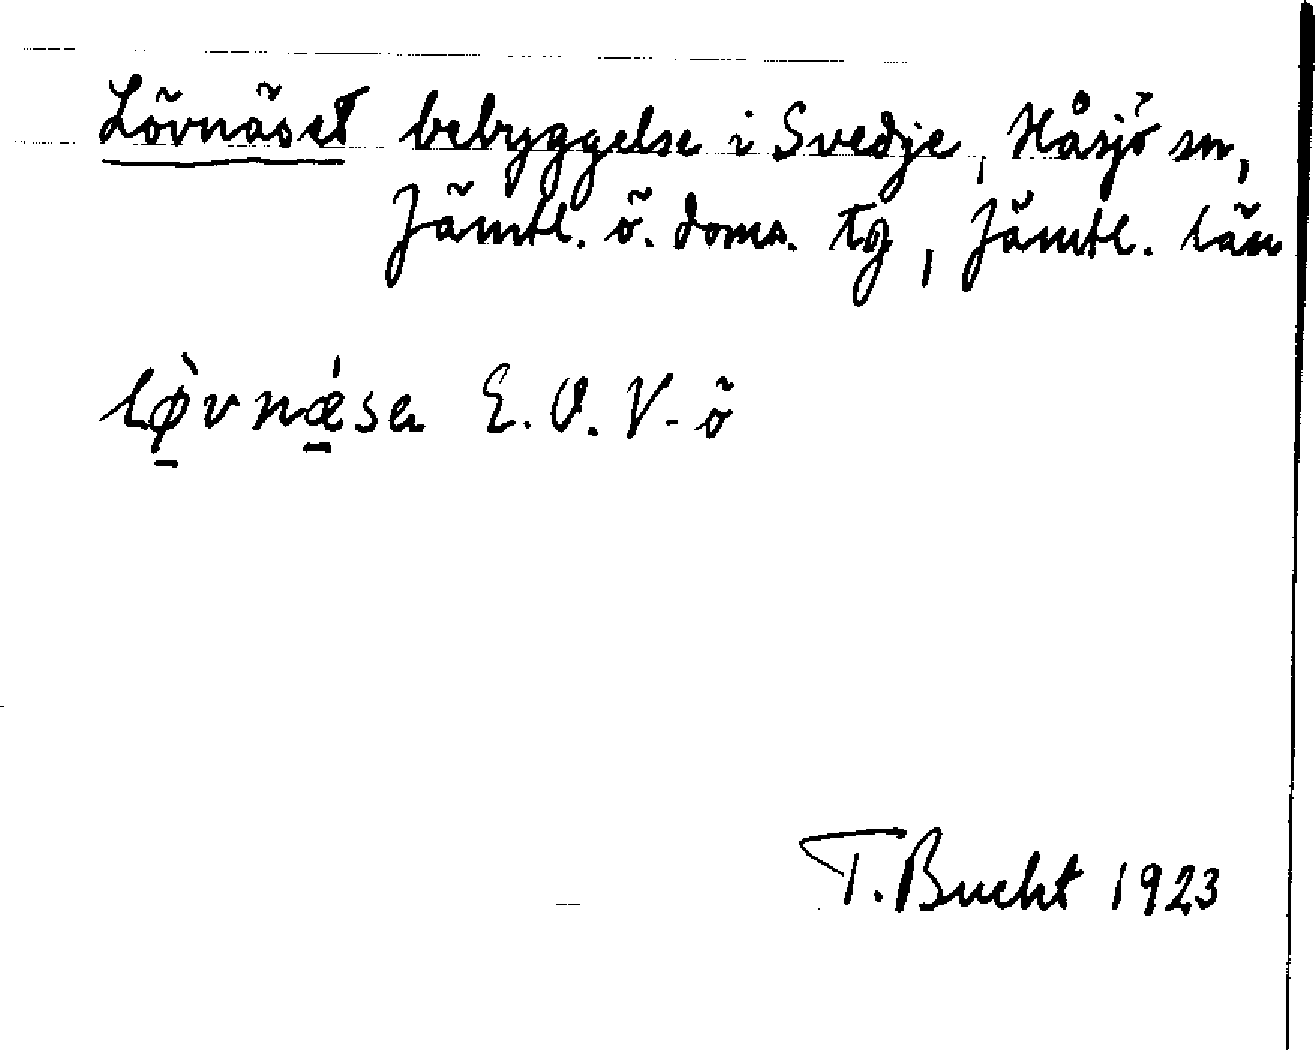 Lövnäset bebyggelse i Svedje, Håsjö sn,
Jämtl. ö. doms. tg, Jämtl. län
lø̱̀vnǽ̱sa E. O. V-ö
T. Bucht 1923